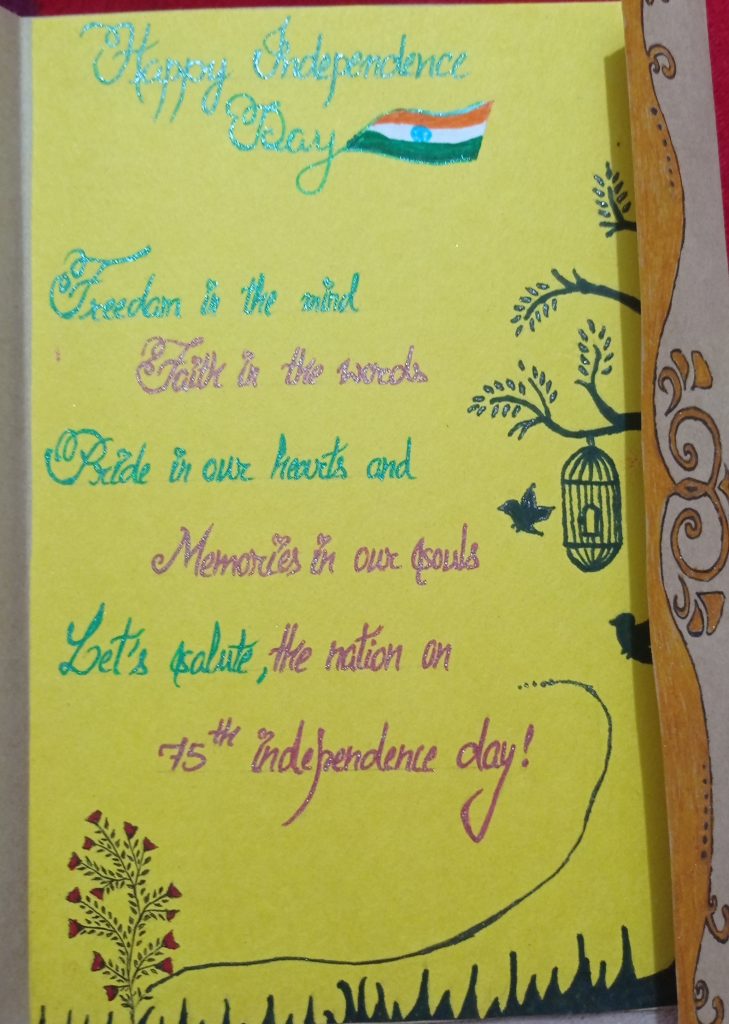 Happy Independence
Day
Freedom in the mind
Faith in the words
Pride in our hearts and
Memories in our souls
Let's salute, the nation on
75th independence day!